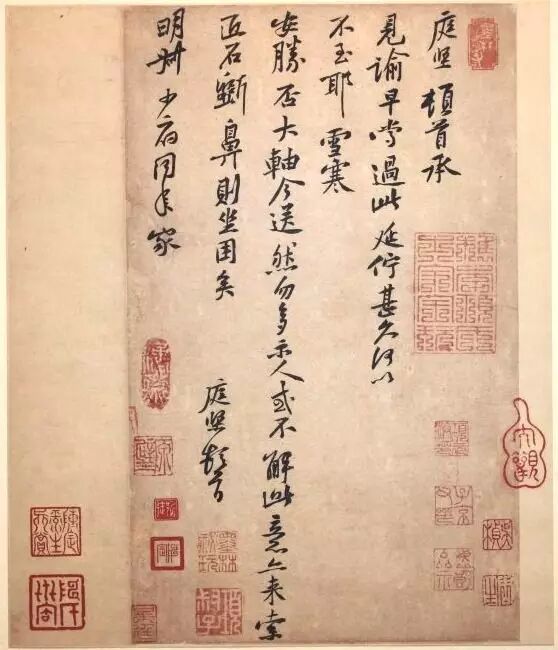 庭堅頓首承
見諭早嘗過此延佇甚久何以
不至耶雪寒
安勝否大軸今送然勿多示人或不解此意亦来索
匠石斵鼻則坐困矣
庭堅頓首
明叔少府同年家